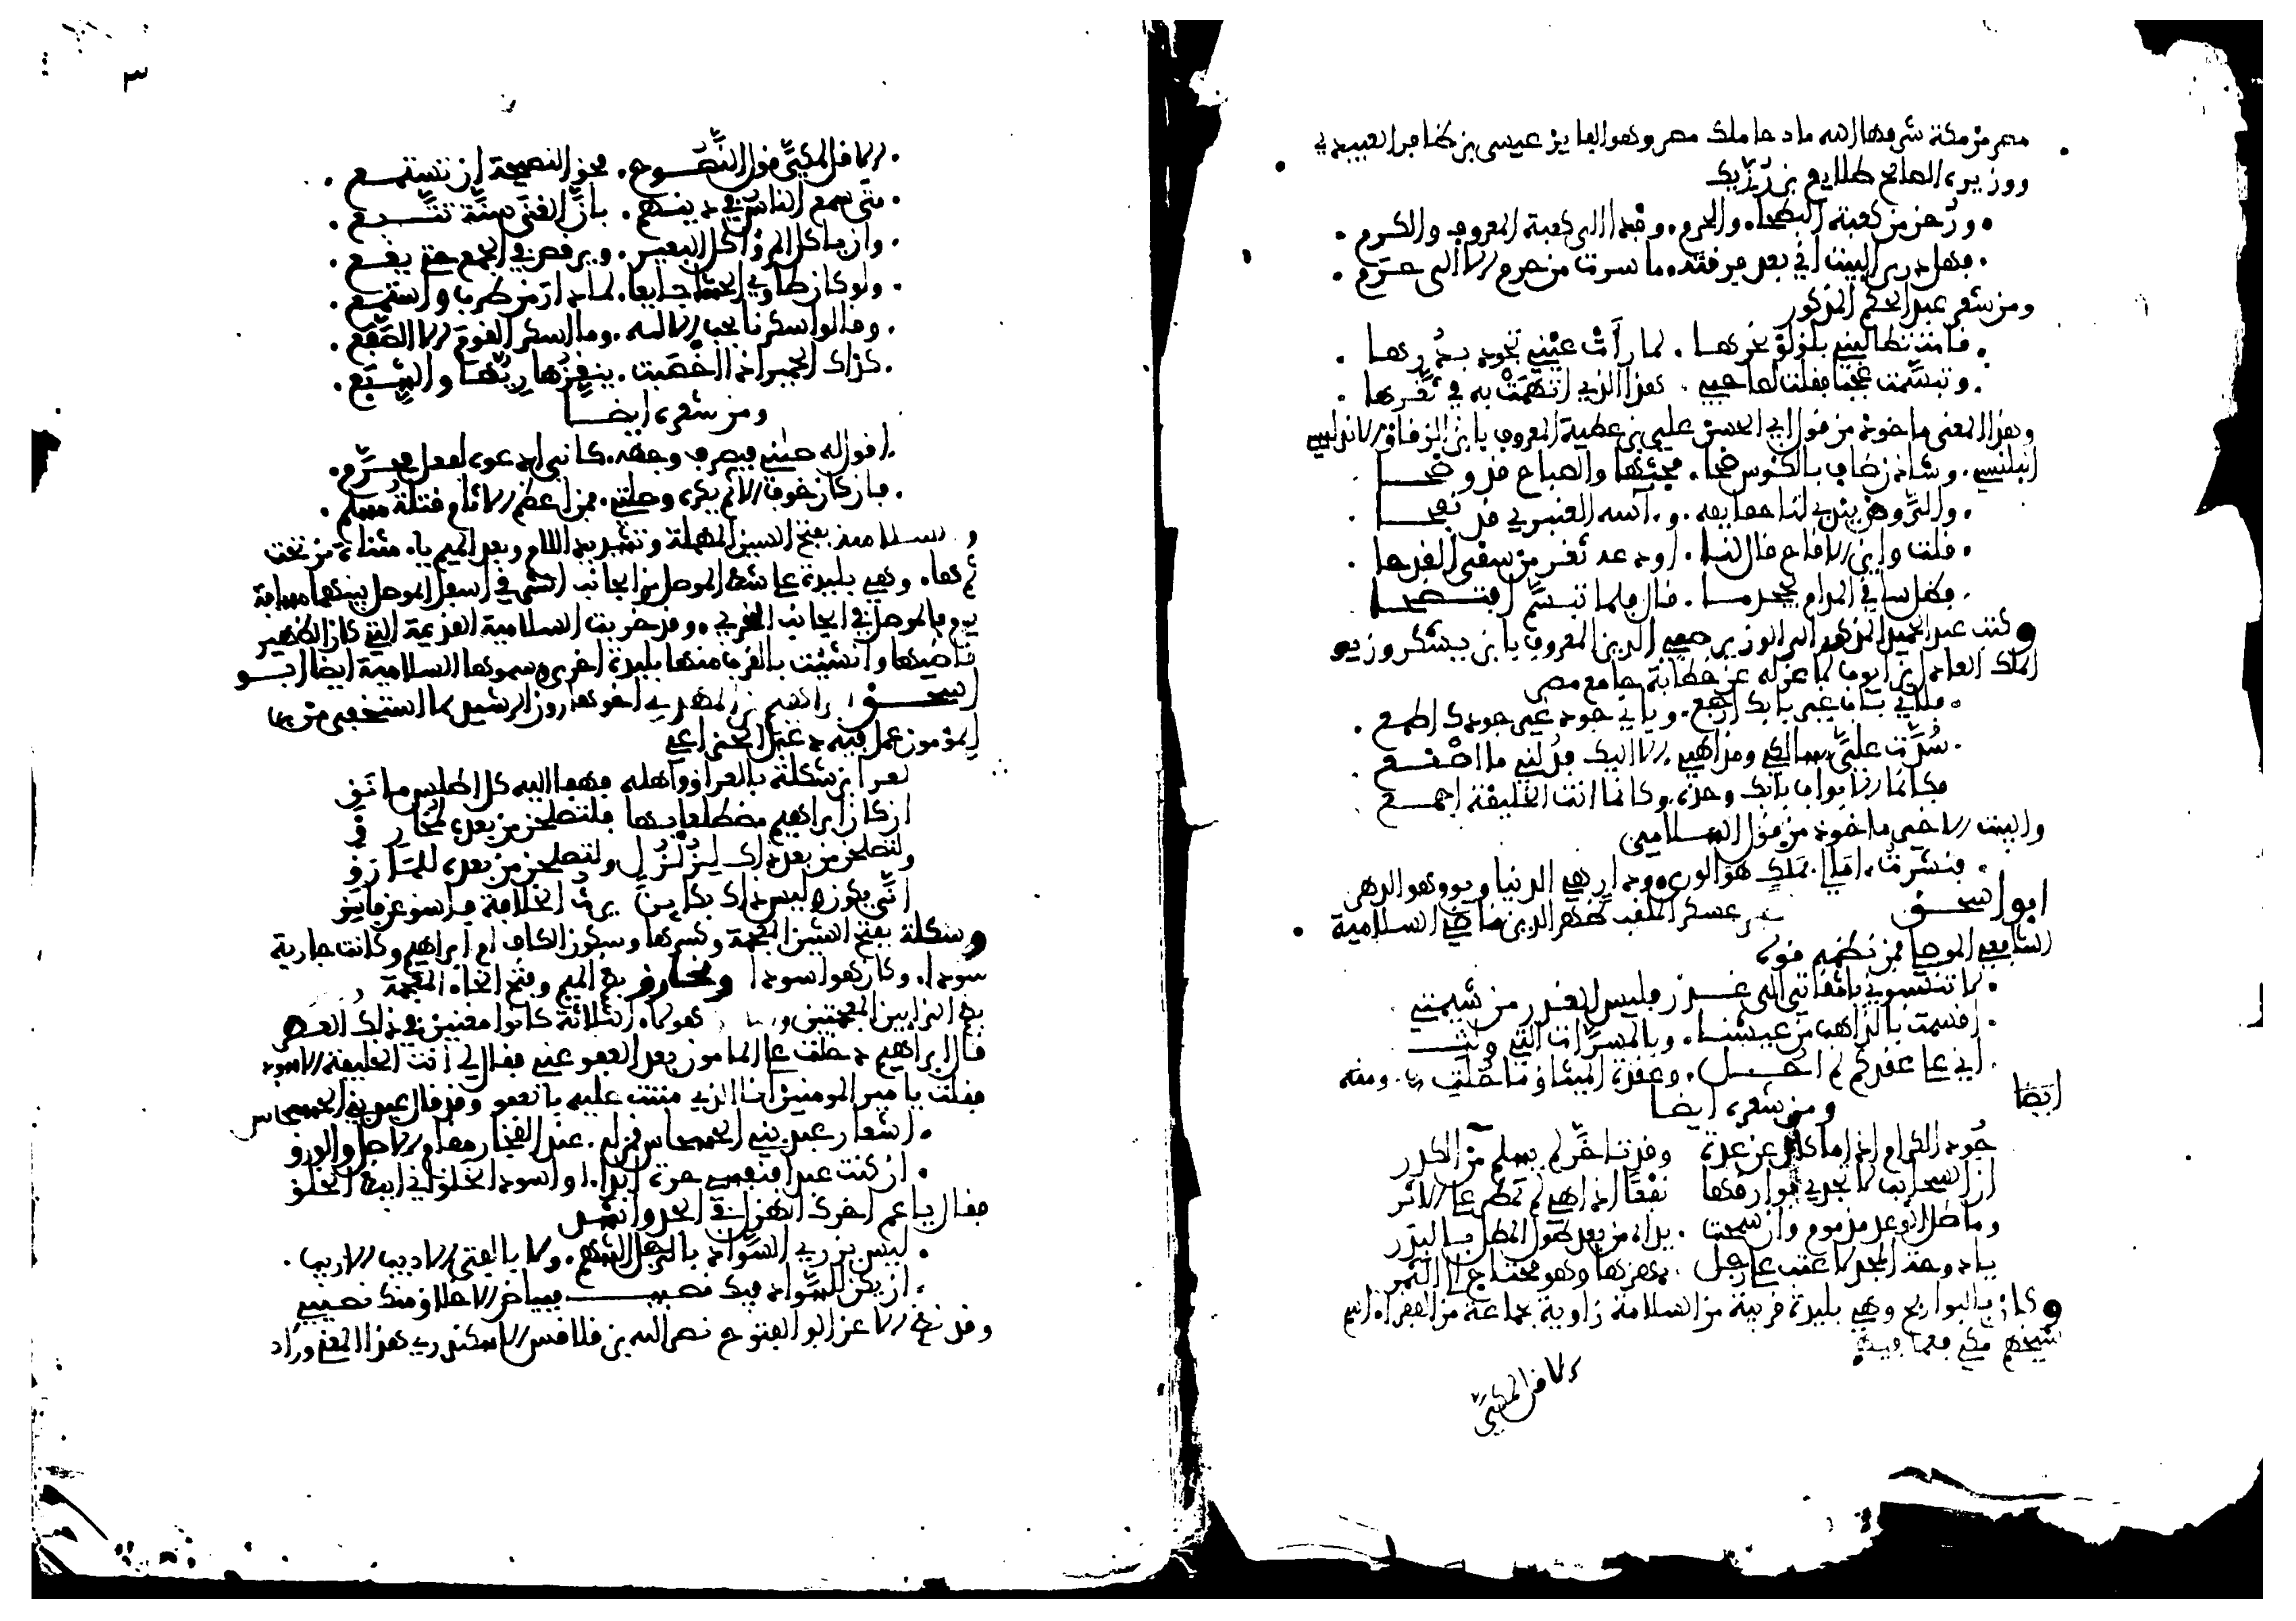 مصر من مكة شرفها الله مادحا ملك مصر وهو الفايز عيسى بن ظافر العبيدي
ووزيره الصالح طلايع بن رزيك
ورحن من كعبة البطحاء والحرم وفدا الى كعبة المعروف والكرم
فهل درى البيت اني بعد فرقته ما سرت من حرم الا الى حرم
ومن شعر عبد الحكم المذكور
قامت تطالبني بلؤلؤ نحرها لما رأت عيني تجود بدرها
وتبسمت عجبا فقلت لصاحبي هذا الذي اتهمت به في ثغرها
وهذا المعنى ماخوذ من قول ابي الحسن علي بن عطية المعروف بابن الزقاق الاندلسي
البلنسي وشادن طاف بالكئوس ضحا فحثها والصباح قد وضحا
والروض يبدي لنا شقايقه وآسه العنبري قد نفحا
قلت واين الاقاح قال لنا اودعته ثغر من سقى القدحا
فظل ساقي المدام يجحد ما قال فلما تبسم افتضحا
وكتب عبد الحكم المذكور الى الوزير صفي الدين المعروف بابن شكر وزير
الملك العادل بن ايوب لما عزله عن خطابة جامع مصر
فلأي باب غير بابك ارجع وبأي جود غير جودك اطمع
سدت علي مسالكي ومذاهبي الا اليك فدلني ما اصنع
فكانما الابواب بابك وحده وكانما انت الخليقة اجمع
والبيت الاخير ماخوذ من قول السلامي
فبشرت امالي بملك هو الورى ودار هي الدنيا ويوم هو الدهر
ابو اسحق بن عسكر الملقب ظهير الدين قاضي السلامية
الشافعي الموصلي فمن نظمه قوله
لا تنسبوني يا ثقاتي الى غدر فليس الغدر من شيمتي
اقسمت بالذاهب من عيشنا وبالمسرات التي ولت
اني على عهدكم لم احل وعقدة الميثاق ما حلت ومنه
ايضا
ومن شعره ايضا
جود الكرام اذا ما كان عن عدة وقد تاخر لم يسلم من الكدر
ان السحايب لا تجدي بوارقها نفعا اذا هي لم تمطر على الاثر
وماطل الوعد مذموم وان سمحت يداه من بعد طول المطل بالبدر
يا دوحة المجد لا عتب على رجل يهزها وهو محتاج الى الثمر
وكان بالبوازيج وهي بليدة قريبة من السلامة زاوية لجماعة من الفقراء اسم
شيخهم مكي فعمل فيه
الا قل لمكي
٣
الا قل لمكي قول النصوح فحق النصيحة ان تستمع
متى سمع الناس في دينهم بان الغنى سنة تتبع
وان ياكل المرء اكل البعير ويرقص في الجمع حتى يقع
ولو كان طاوي الحشا جايعا لما دار من طرب واستمع
وقالوا سكرنا بحب الاله وما اسكر القوم الا القصع
كذاك الحمير اذا اخصبت ينقزها ريها والشبع
ومن شعره ايضا
اقول له صلني فيصرف وجهه كاني ادعوه لفعل محرم
فان كان خوف الاثم يكره وصلتي فمن اعظم الاثام قتلة مسلم
وسلامية بفتح السين المهملة وتشديد اللام وبعد الميم ياء مثناة من تحت
ثم هاء وهي بليدة على شط الموصل من الجانب الشرقي اسفل الموصل بينهما مسافة
يوم فالموصل في الجانب الغربي وقد خربت السلامية القديمة التي كان الظهير
قاضيها وانشئت بالقرب منها بليدة اخرى وسموها السلامية ايضا ابو
اسحق ابراهيم بن المهدي اخو هارون الرشيد لما استخفى من
المؤمون عمل فيه دعبل الخزاعي
نعر ابن شكلة بالعراق واهله فهفا اليه كل اطلس مائق
ان كان ابراهيم مضطلعا بها فلتصلحن من بعده لمخارق
ولتصلحن من بعد ذاك لزلزل ولتصلحن من بعده للمارق
انى يكون وليس ذاك بكاين يرث الخلافة فاسق عن فاسق
وشكلة بفتح الشين المعجمة وكسرها وسكون الكاف ام ابراهيم وكانت جارية
سوداء وكان هو اسود ومخارق بضم الميم وفتح الخاء المعجمة
بضم الزايين المعجمتين هولاء الثلاثة كانوا مغنين في ذلك العصر
قال ابراهيم دخلت على المامون بعد العفو عني فقال لي انت الخليفة الاسود
فقلت يا امير المومنين انا الذي مننت عليه بالعفو وقد قال عبد بني الحسحاس
اشعار عبد بني الحسحاس قمن له عند الفخار مقام الاصل والورق
ان كنت عبدا فنفسي حرة ابدا او اسود الخلق اني ابيض الخلق
فقال يا عم اخرجك الهزل الى الجد وانشد
ليس يزري السواد بالرجل الشهم ولا بالفتى الاديب الاريب
ان يكن للسواد فيك نصيب فبياض الاخلاق منك نصيبي
وقد نظم الاعز ابو الفتوح نصر الله بن قلاقس الاسكندري هذا المعنى وزاد